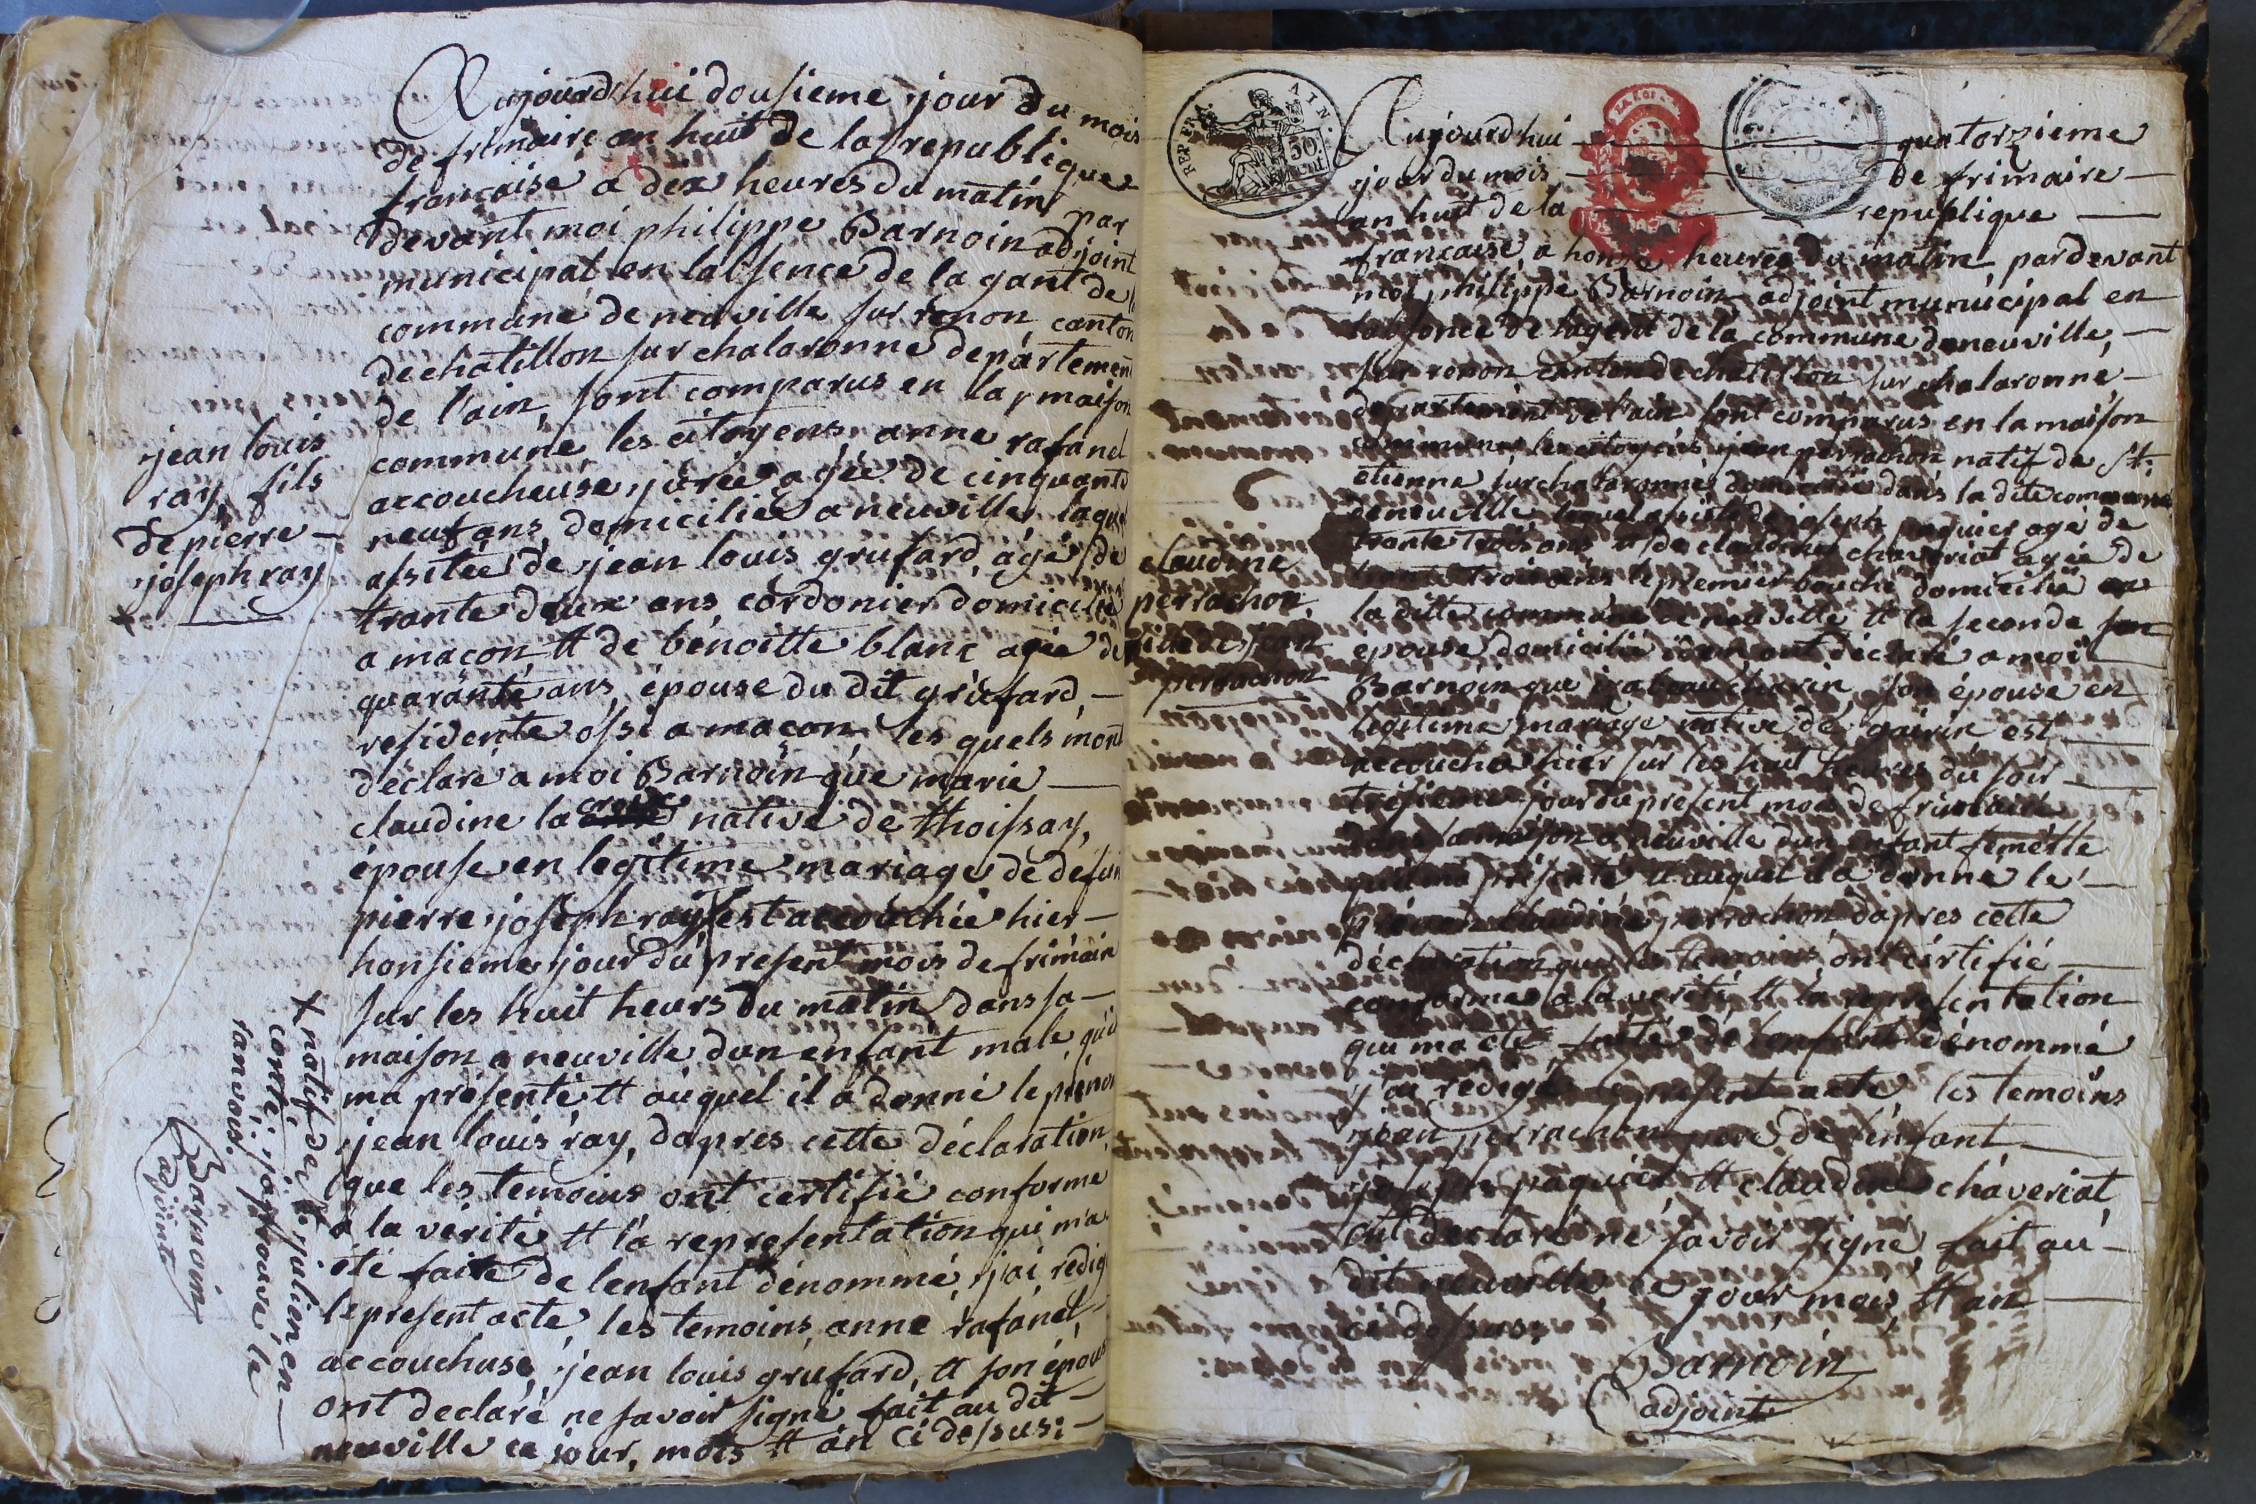 Aujourdhui dousieme jour du mois
de frimaire an huit de la republique
francaise a dix heures du matin par
devant moi philippe Barnoin adjoint
municipal en labsence de la gant de
commune de neuville sur renon canton
de chatillon sur chalaronne departement
de l'ain, sont comparus en la maison
commune les citoyens, anne rafanel
accoucheuse jurée agée de cinquante
neuf ans domicilie a neuville, laque
assitée de jean louis grufard, agé de
trante deux ans cordonier domicilié
a macon, tt de bénoitte blanc agée de
quarante ans, épouse du dit grufard, —
residente ossi a macon les quels mont
déclaré a moi Barnoin que marie —
claudine la croix native de thoissay,
épouse en legitime mariage de defun
pierre joseph ray est accouchée hier —
honsieme jour du present mois de frimair
sur les huit heurs du matin dans sa —
maison a neuville dun enfant male qu'il
ma présenté tt auquel il a donné le prénom
jean louis ray, dapres cette déclaration
que les temoins ont certifié conforme
a la vérité tt la representation qui m'a
été faite de lenfant dénommé, j'ai redigé
le present acte, les temoins, anne rafanel,
accouchuse, jean louis grufard, tt son épouse
ont declaré ne savoir signé fait au dit —
neuville ce jour, mois tt an ci dessus: —
jean louis
ray, fils
de pierre —
joseph ray
+ natif de st julien en —
conté: jai trouve le
ranvois.
Barnoin
adjoint
REP. FRA. AIN.
50 Cent.
LA LOI
Aujourd'hui — quatorzieme
jour du mois — de frimaire —
an huit de la — republique —
francaise a honze heures du matin, pardevant
moi philippe Barnoin adjoint municipal en
labsence de lagent de la commune de neuville, —
sur renon canton de chatillon sur chalaronne —
departement de l'ain sont comparus en la maison
commune les citoyens jean perrachon natif de st.
étienne sur chalaronne domicilié dans la dite commune
de neuville lequel assisté de joseph paquier agé de
trante trois ans tt de claudine chaveriat agée de
trante trois ans le premier bouché domicilié
la ditte commune de neuville tt la seconde son
epouse domicilié idem ont déclaré a moi
Barnoin que son épouse en
legitime mariage native de est —
accouché hier sur les huit heures du soir —
tresieme jour du present mois de frimaire
dans sa maison a neuville dun enfant femelle
quil ma présenté tt auquel il a donné le —
prénom claudine perrachon dapres cette
déclaration que les temoins ont certifié —
conforme a la verité tt la representation
qui ma eté faite de lenfant dénommé
j'ai redigé le present acte les temoins
jean perrachon pere de l'enfant —
joseph paquier tt claudine chaveriat
ont declaré ne savoir signé, fait au —
dit neuville, ce jour, mois, tt an —
ci dessus,
Barnoin
adjoint
claudine
perrachon,
fille de jean
perrachon